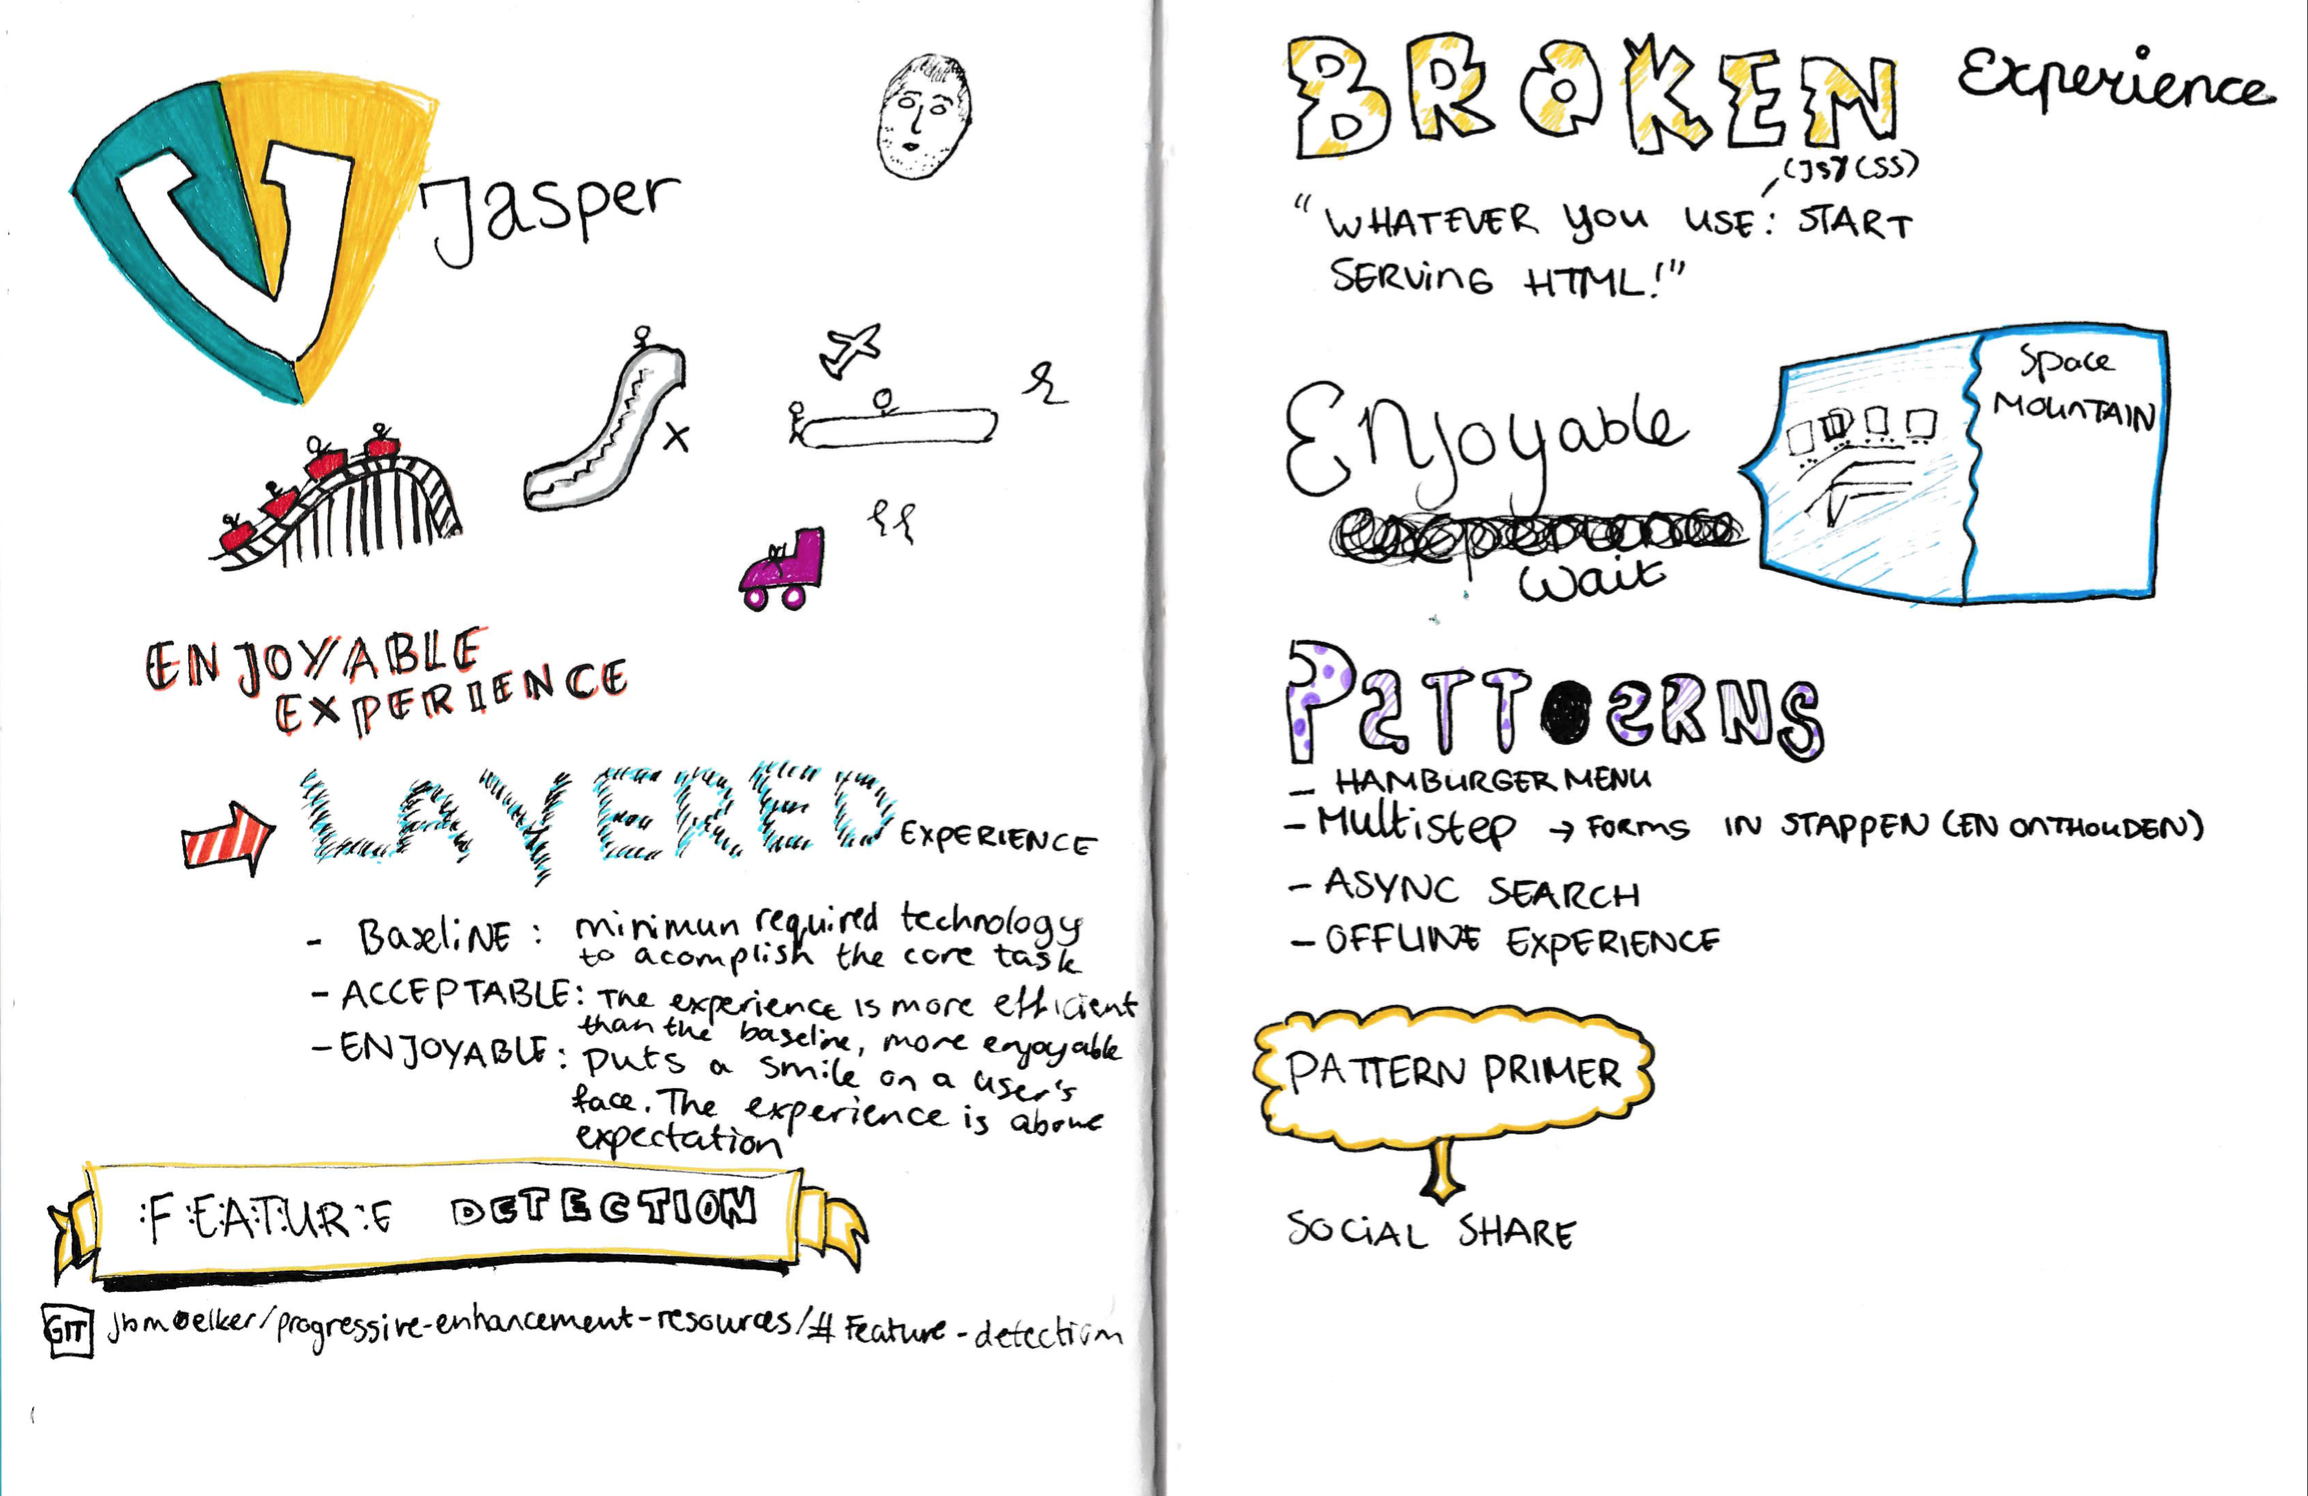 V
Jasper
X
ENJOYABLE
EXPERIENCE
LAYERED EXPERIENCE
- BaseliNE : minimun required technology
to acomplish the core task
- ACCEPTABLE: The experience is more efficient
than the baseline, more enjoyable
- ENJOYABLE: puts a smile on a user's
face. The experience is above
expectation
FEATURE DETECTION
GIT jbmoelker/progressive-enhancement-resources/#Feature-detection
BROKEN Experience
(JS/CSS)
"WHATEVER YOU USE: START
SERVING HTML!"
Enjoyable
experience
wait
Space
MOUNTAIN
PATTERNS
- HAMBURGER MENU
- Multistep → FORMS IN STAPPEN (EN ONTHOUDEN)
- ASYNC SEARCH
- OFFLINE EXPERIENCE
PATTERN PRIMER
SOCIAL SHARE